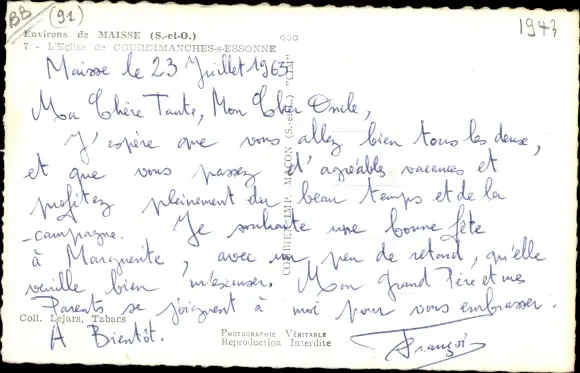 BB (91)
1943
Environs de MAISSE (S.-et-O.)
7 - L'Eglise de COURDIMANCHES-s-ESSONNE
Maisse le 23 Juillet 1963
Ma Chère Tante, Mon Cher Oncle,
J'espère que vous allez bien tous les deux,
et que vous passez d'agréables vacances et
profitez pleinement du beau temps et de la
campagne. Je souhaite une bonne fête
à Marguerite, avec un peu de retard, qu'elle
veuille bien m'excuser. Mon Grand Père et mes
Parents se joignent à moi pour vous embrasser.
A Bientôt.
François
Coll. Lejars, Tabacs
PHOTOGRAPHIE VÉRITABLE
Reproduction Interdite
COMBIER IMP. MACON (S.-et-L.) "CIM"